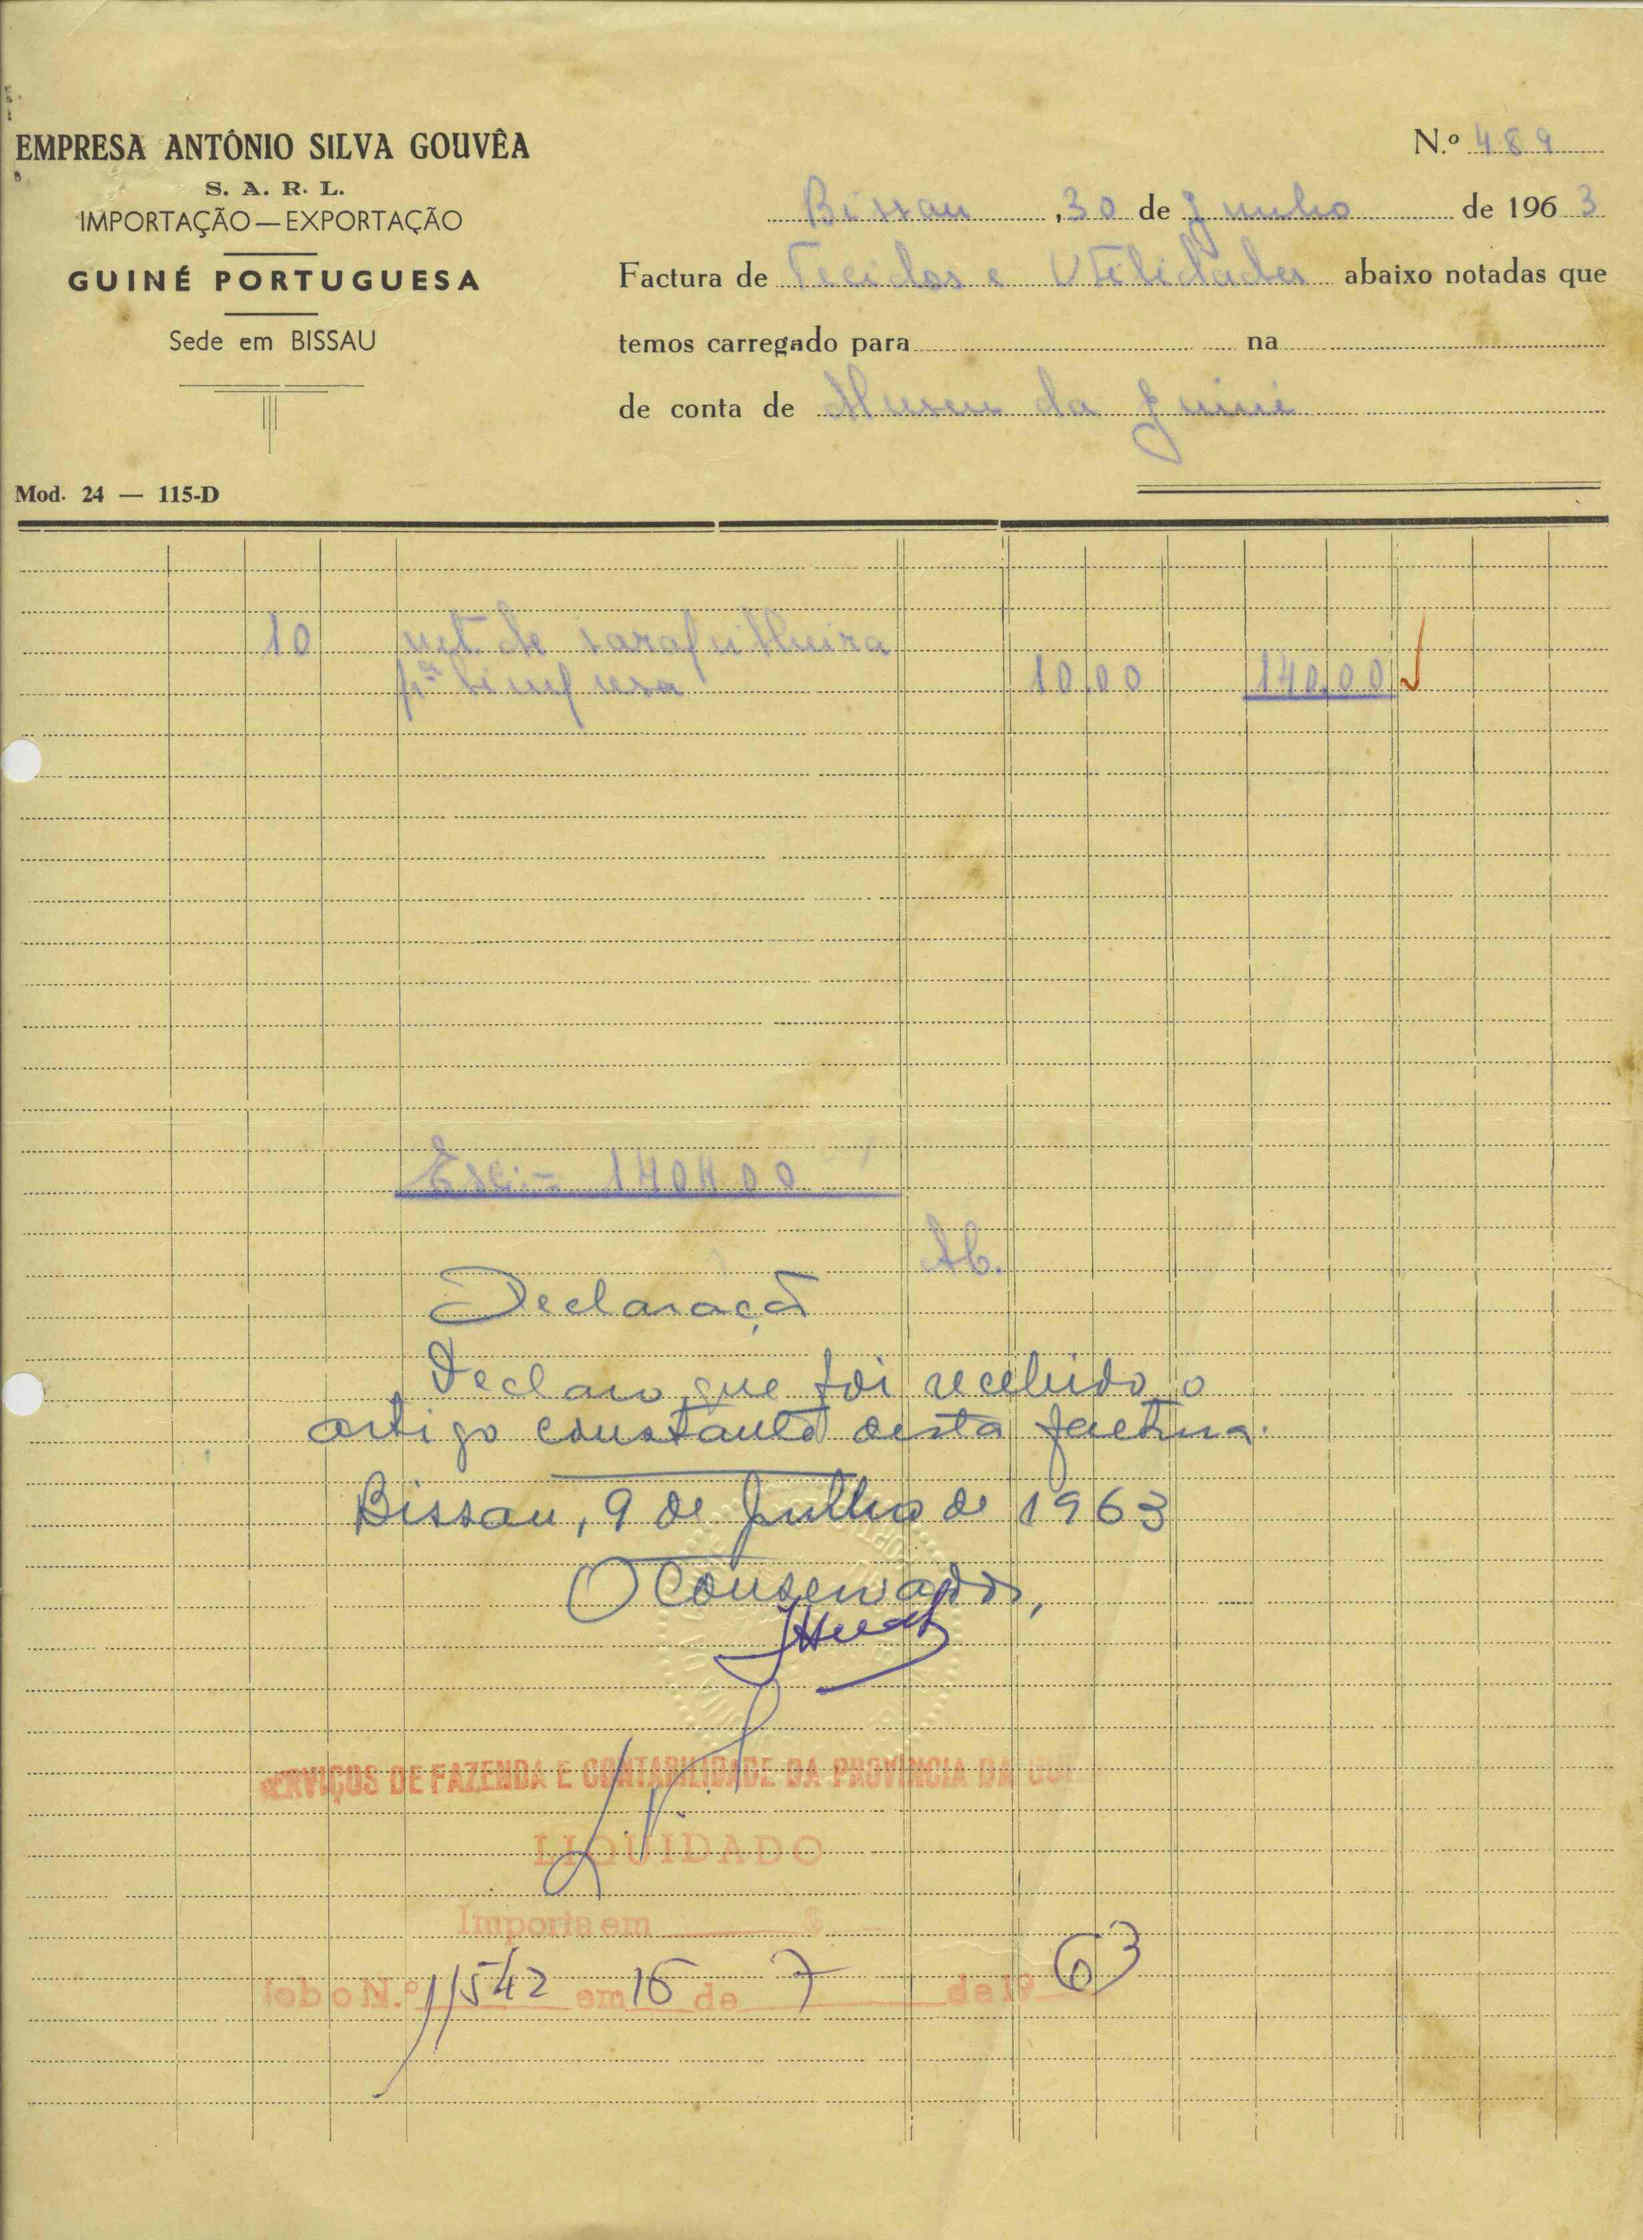 EMPRESA ANTÔNIO SILVA GOUVÊA
S. A. R. L.
IMPORTAÇÃO — EXPORTAÇÃO
GUINÉ PORTUGUESA
Sede em BISSAU
Mod. 24 — 115-D
N.º 489
Bissau, 30 de Junho de 1963
Factura de Tecidos e Utilidades abaixo notadas que
temos carregado para na
de conta de Museu da Guiné
10 mt. de sarafilheira
pª limpesa 10,00 140,00
Esc:= 140$00
Declaração
Declaro que foi recebido o
artigo constante desta factura.
Bissau, 9 de Julho de 1963
O Conservador,
SERVIÇOS DE FAZENDA E CONTABILIDADE DA PROVÍNCIA DA GUI
LIQUIDADO
Importa em $
N.º 11542 em 16 de 7 de 19 63